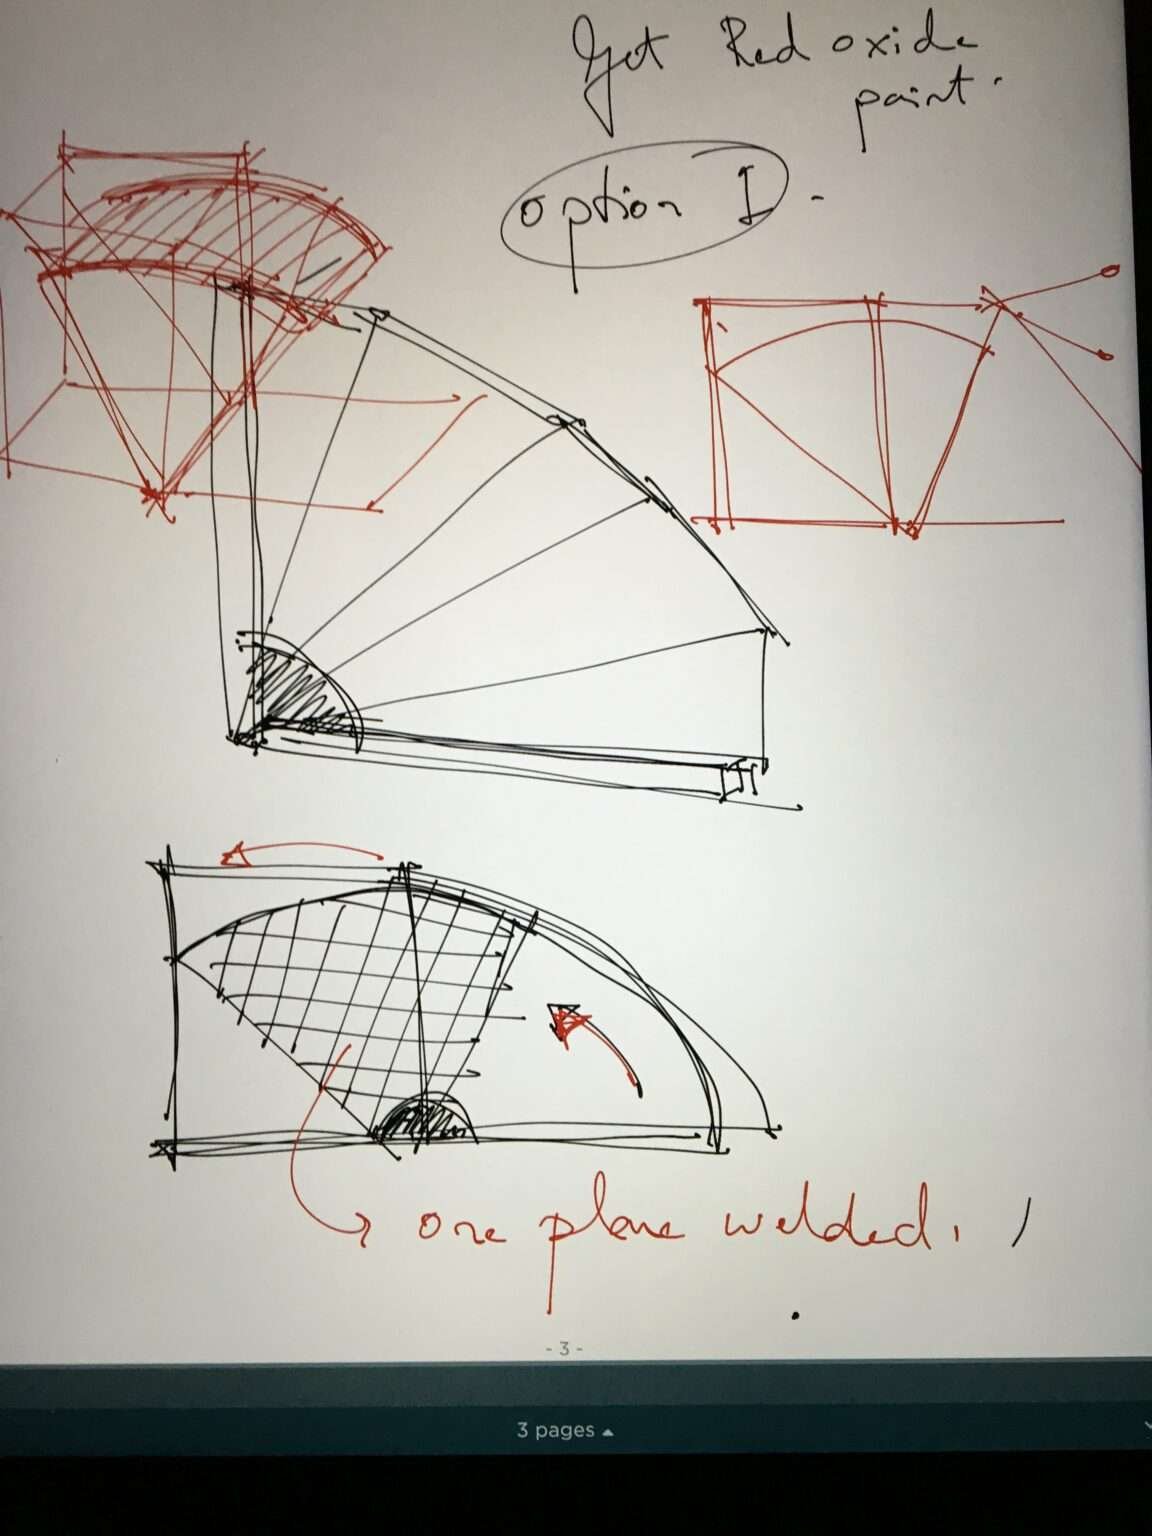 Get Red oxide
paint.
option I.
one plane welded.
- 3 -
3 pages